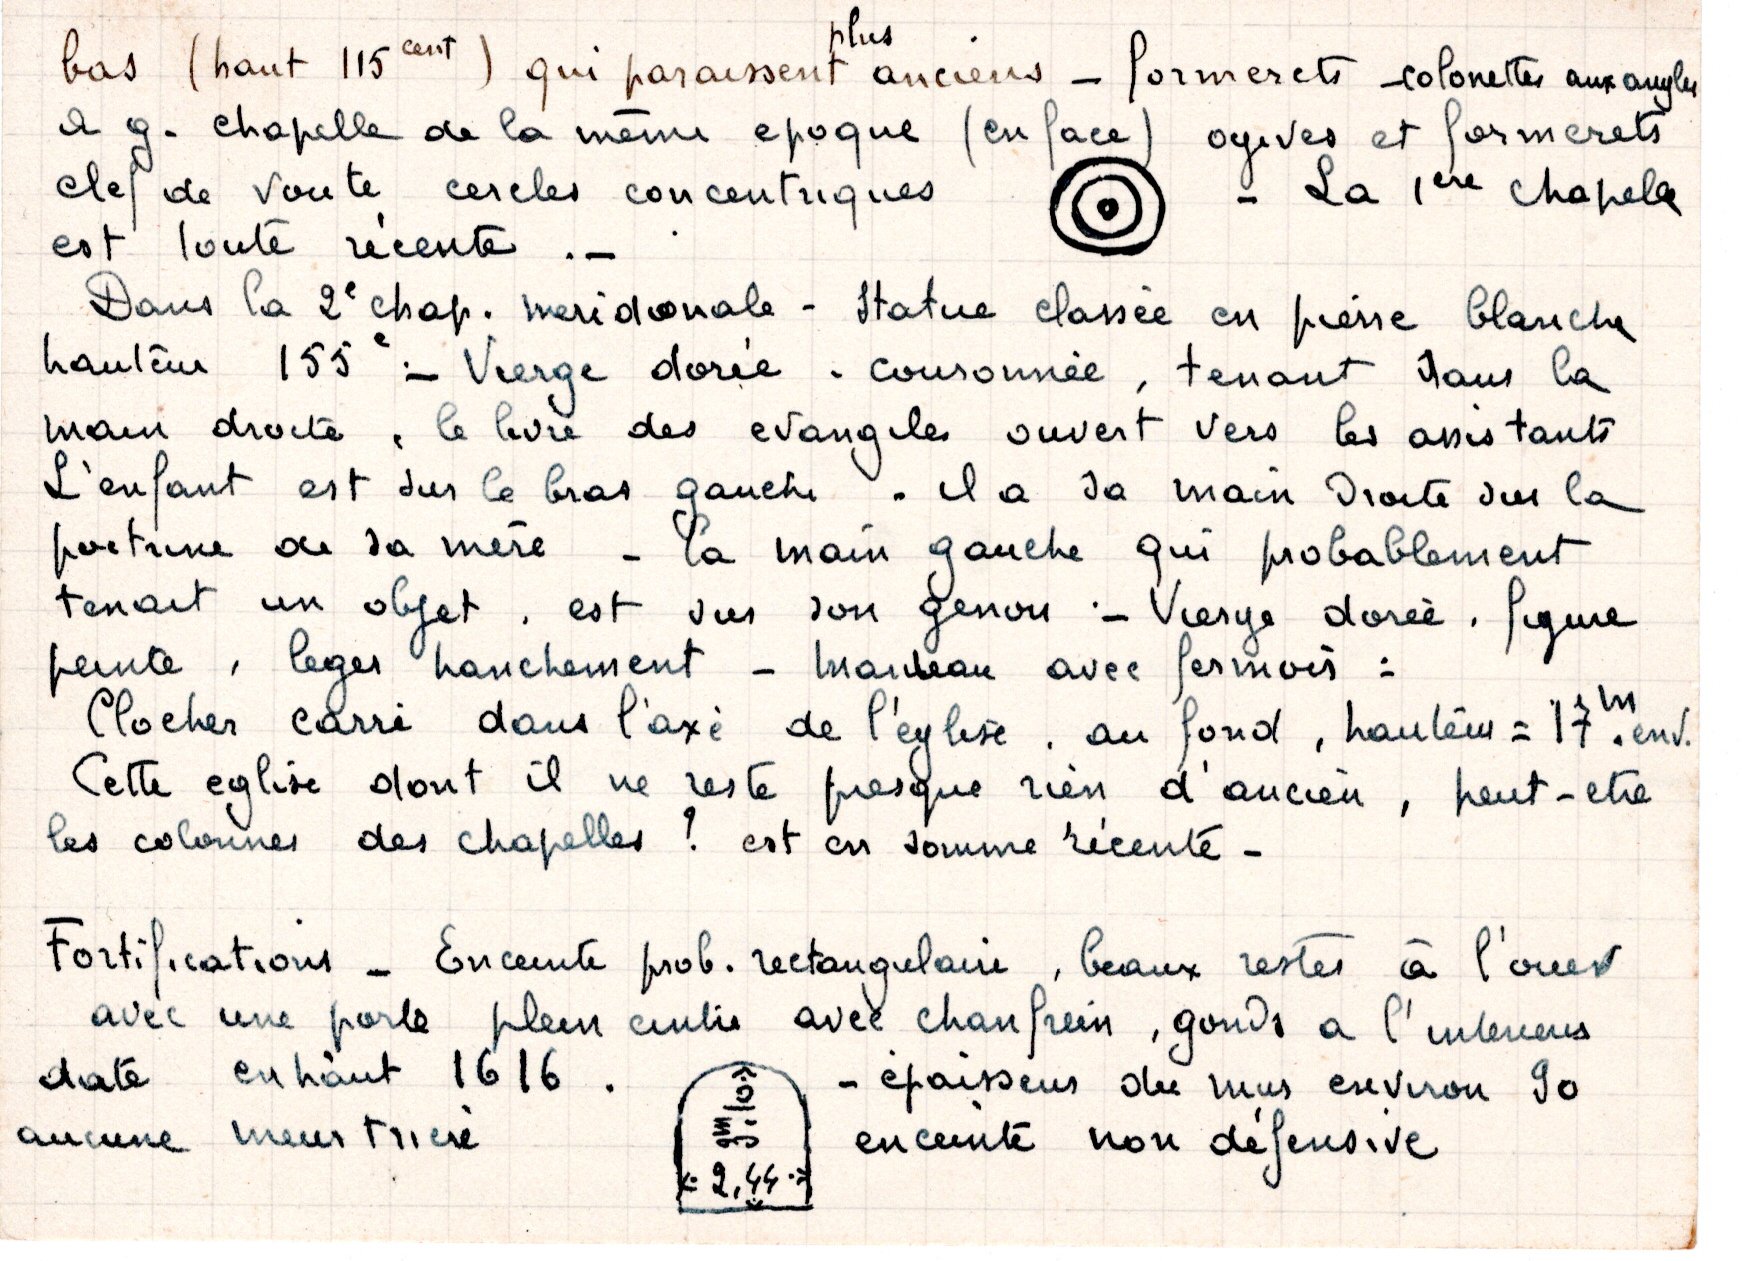 bas (haut 115 cent) qui paraissent plus anciens - formerets - colonettes aux angles
a g. chapelle de la même epoque (en face) ogives et formerets
clef de voute cercles concentriques - La 1ere chapelle
est toute récente . -
Dans la 2e chap. meridionale - Statue classée en pierre blanche
hauteur 155c :- Vierge dorée . couronnée, tenant dans la
main droite, le livre des evangiles ouvert vers les assistants
L'enfant est sur le bras gauche . il a sa main droite sur la
poitrine de sa mère - la main gauche qui probablement
tenait un objet, est sur son genou :- Vierge dorée, figure
peinte, leger hanchement - manteau avec fermoir :
Clocher carré dans l'axe de l'église, au fond, hauteur = 17m. env.
Cette eglise dont il ne reste presque rien d'ancien, peut-etre
les colonnes des chapelles ? est en somme récente -
Fortifications - Enceinte prob. rectangulaire, beaux restes à l'ouest
avec une porte plein cintre avec chanfrein, gonds a l'interieur
date en haut 1616 . - épaisseur du mur environ 90
aucune meurtriere enceinte non défensive
2,44